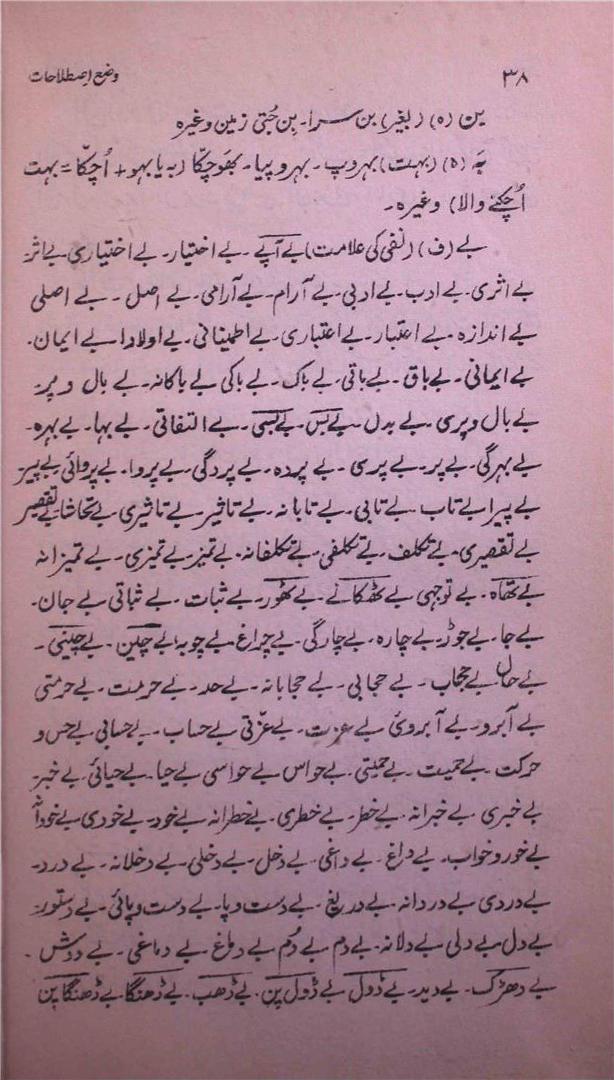 ۳۸ وضع اصطلاحات
بن (ہ) (بغیر) بن سرا۔ بِن جُتی زمین وغیرہ
بَہ (ہ) (بہت) بہروپ۔ بہروپیا۔ بھوچکّا (بہ یا بہو + اُچکّا = بہت
اُچکنے والا) وغیرہ۔
بے (ف) (نفی کی علامت) بے آپے۔ بے اختیار۔ بے اختیاری۔ بے اثر۔
بے اثری۔ بے ادب۔ بے ادبی۔ بے آرام۔ بے آرامی۔ بے اصل۔ بے اصلی
بے اندازہ۔ بے اعتبار۔ بے اعتباری۔ بے اطمینانی۔ بے اولاد۔ بے ایمان۔
بے ایمانی۔ بے باق۔ بے باقی۔ بے باک۔ بے باکی۔ بے باکانہ۔ بے بال و پر۔
بے بال و پری۔ بے بدل۔ بے بس۔ بے بسی۔ بے التفاتی۔ بے بہا۔ بے بہرہ۔
بے بہرگی۔ بے پر۔ بے پری۔ بے پردہ۔ بے پردگی۔ بے پروا۔ بے پروائی۔ بے پیر۔
بے پیرا۔ بے تاب۔ بے تابی۔ بے تابانہ۔ بے تاثیر۔ بے تاثیری۔ بے تحاشا۔ بے تقصیر
بے تقصیری۔ بے تکلف۔ بے تکلفی۔ بے تکلفانہ۔ بے تمیز۔ بے تمیزی۔ بے تمیزانہ
بے تھاہ۔ بے توجہی۔ بے ٹھکانے۔ بے ٹھور۔ بے ثبات۔ بے ثباتی۔ بے جان۔
بے جا۔ بے جوڑ۔ بے چارہ۔ بے چارگی۔ بے چراغ۔ بے چوبہ۔ بے چین۔ بے چینی۔
بے حال۔ بے حجاب۔ بے حجابی۔ بے حجابانہ۔ بے حد۔ بے حرمت۔ بے حرمتی
بے آبرو۔ بے آبروئی۔ بے عزت۔ بے عزّتی۔ بے حساب۔ بے حسابی۔ بے حس و
حرکت۔ بے حمیت۔ بے حمیتی۔ بے حواس۔ بے حواسی۔ بے حیا۔ بے حیائی۔ بے خبر۔
بے خبری۔ بے خبرانہ۔ بے خطر۔ بے خطری۔ بے خطرانہ۔ بے خود۔ بے خودی۔
بے خور و خواب۔ بے داغ۔ بے داغی۔ بے دخل۔ بے دخلی۔ بے دخلانہ۔ بے درد۔
بے دردی۔ بے دردانہ۔ بے دریغ۔ بے دست و پا۔ بے دست و پائی۔ بے دستور۔
بے دل۔ بے دلی۔ بے دلانہ۔ بے دم۔ بے دُم۔ بے دماغ۔ بے دماغی۔
بے دھڑک۔ بے دید۔ بے ڈول۔ بے ڈول پن۔ بے ڈھب۔ بے ڈھنگا۔ بے ڈھنگا پن